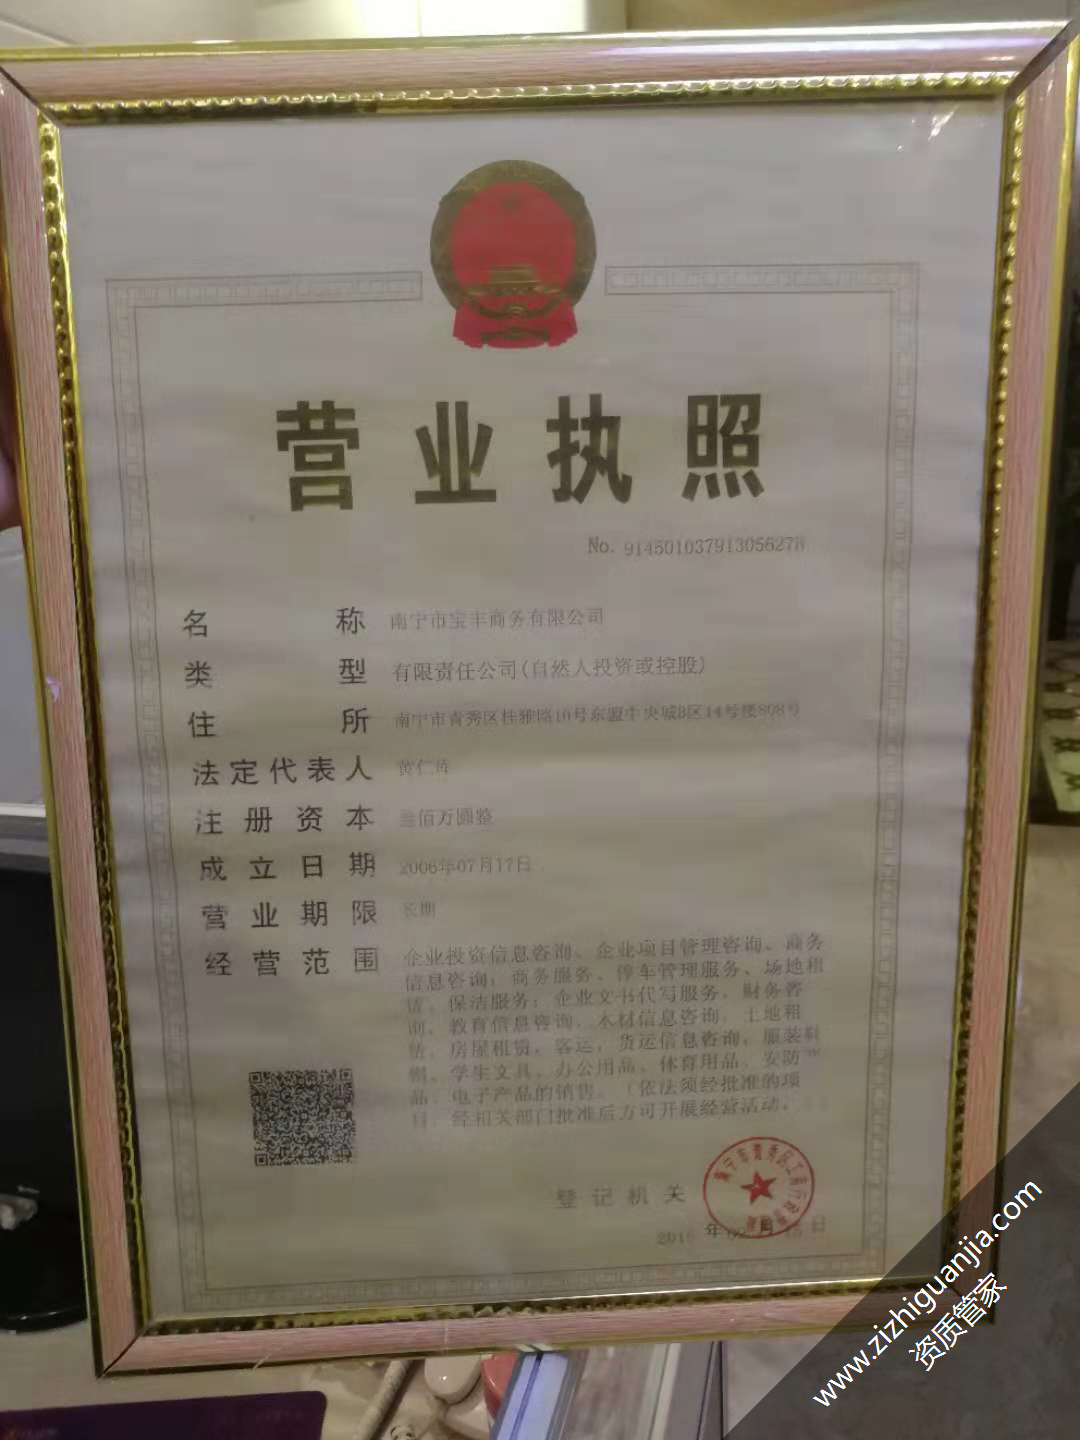 营业执照
No. 91450103791305627
名称 南宁市宝丰商务有限公司
类型 有限责任公司(自然人投资或控股)
住所 南宁市青秀区桂雅路10号东盟中央城B区14号楼808号
法定代表人 黄仁
注册资本 叁佰万圆整
成立日期 2006年07月17日
营业期限 长期
经营范围 企业投资信息咨询、企业项目管理咨询、商务
信息咨询;商务服务、停车管理服务、场地租
赁、保洁服务;企业文书代写服务,财务咨
询,教育信息咨询,木材信息咨询,土地租
赁,房屋租赁,客运,货运信息咨询;服装鞋
帽、学生文具、办公用品、体育用品、安防产
品、电子产品的销售。(依法须经批准的项
目,经相关部门批准后方可开展经营活动。
登记机关
年 月 日
www.zizhiguanjia.com
资质管家